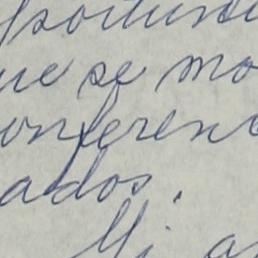 ue se mo
onferenc
ados.
Mi a